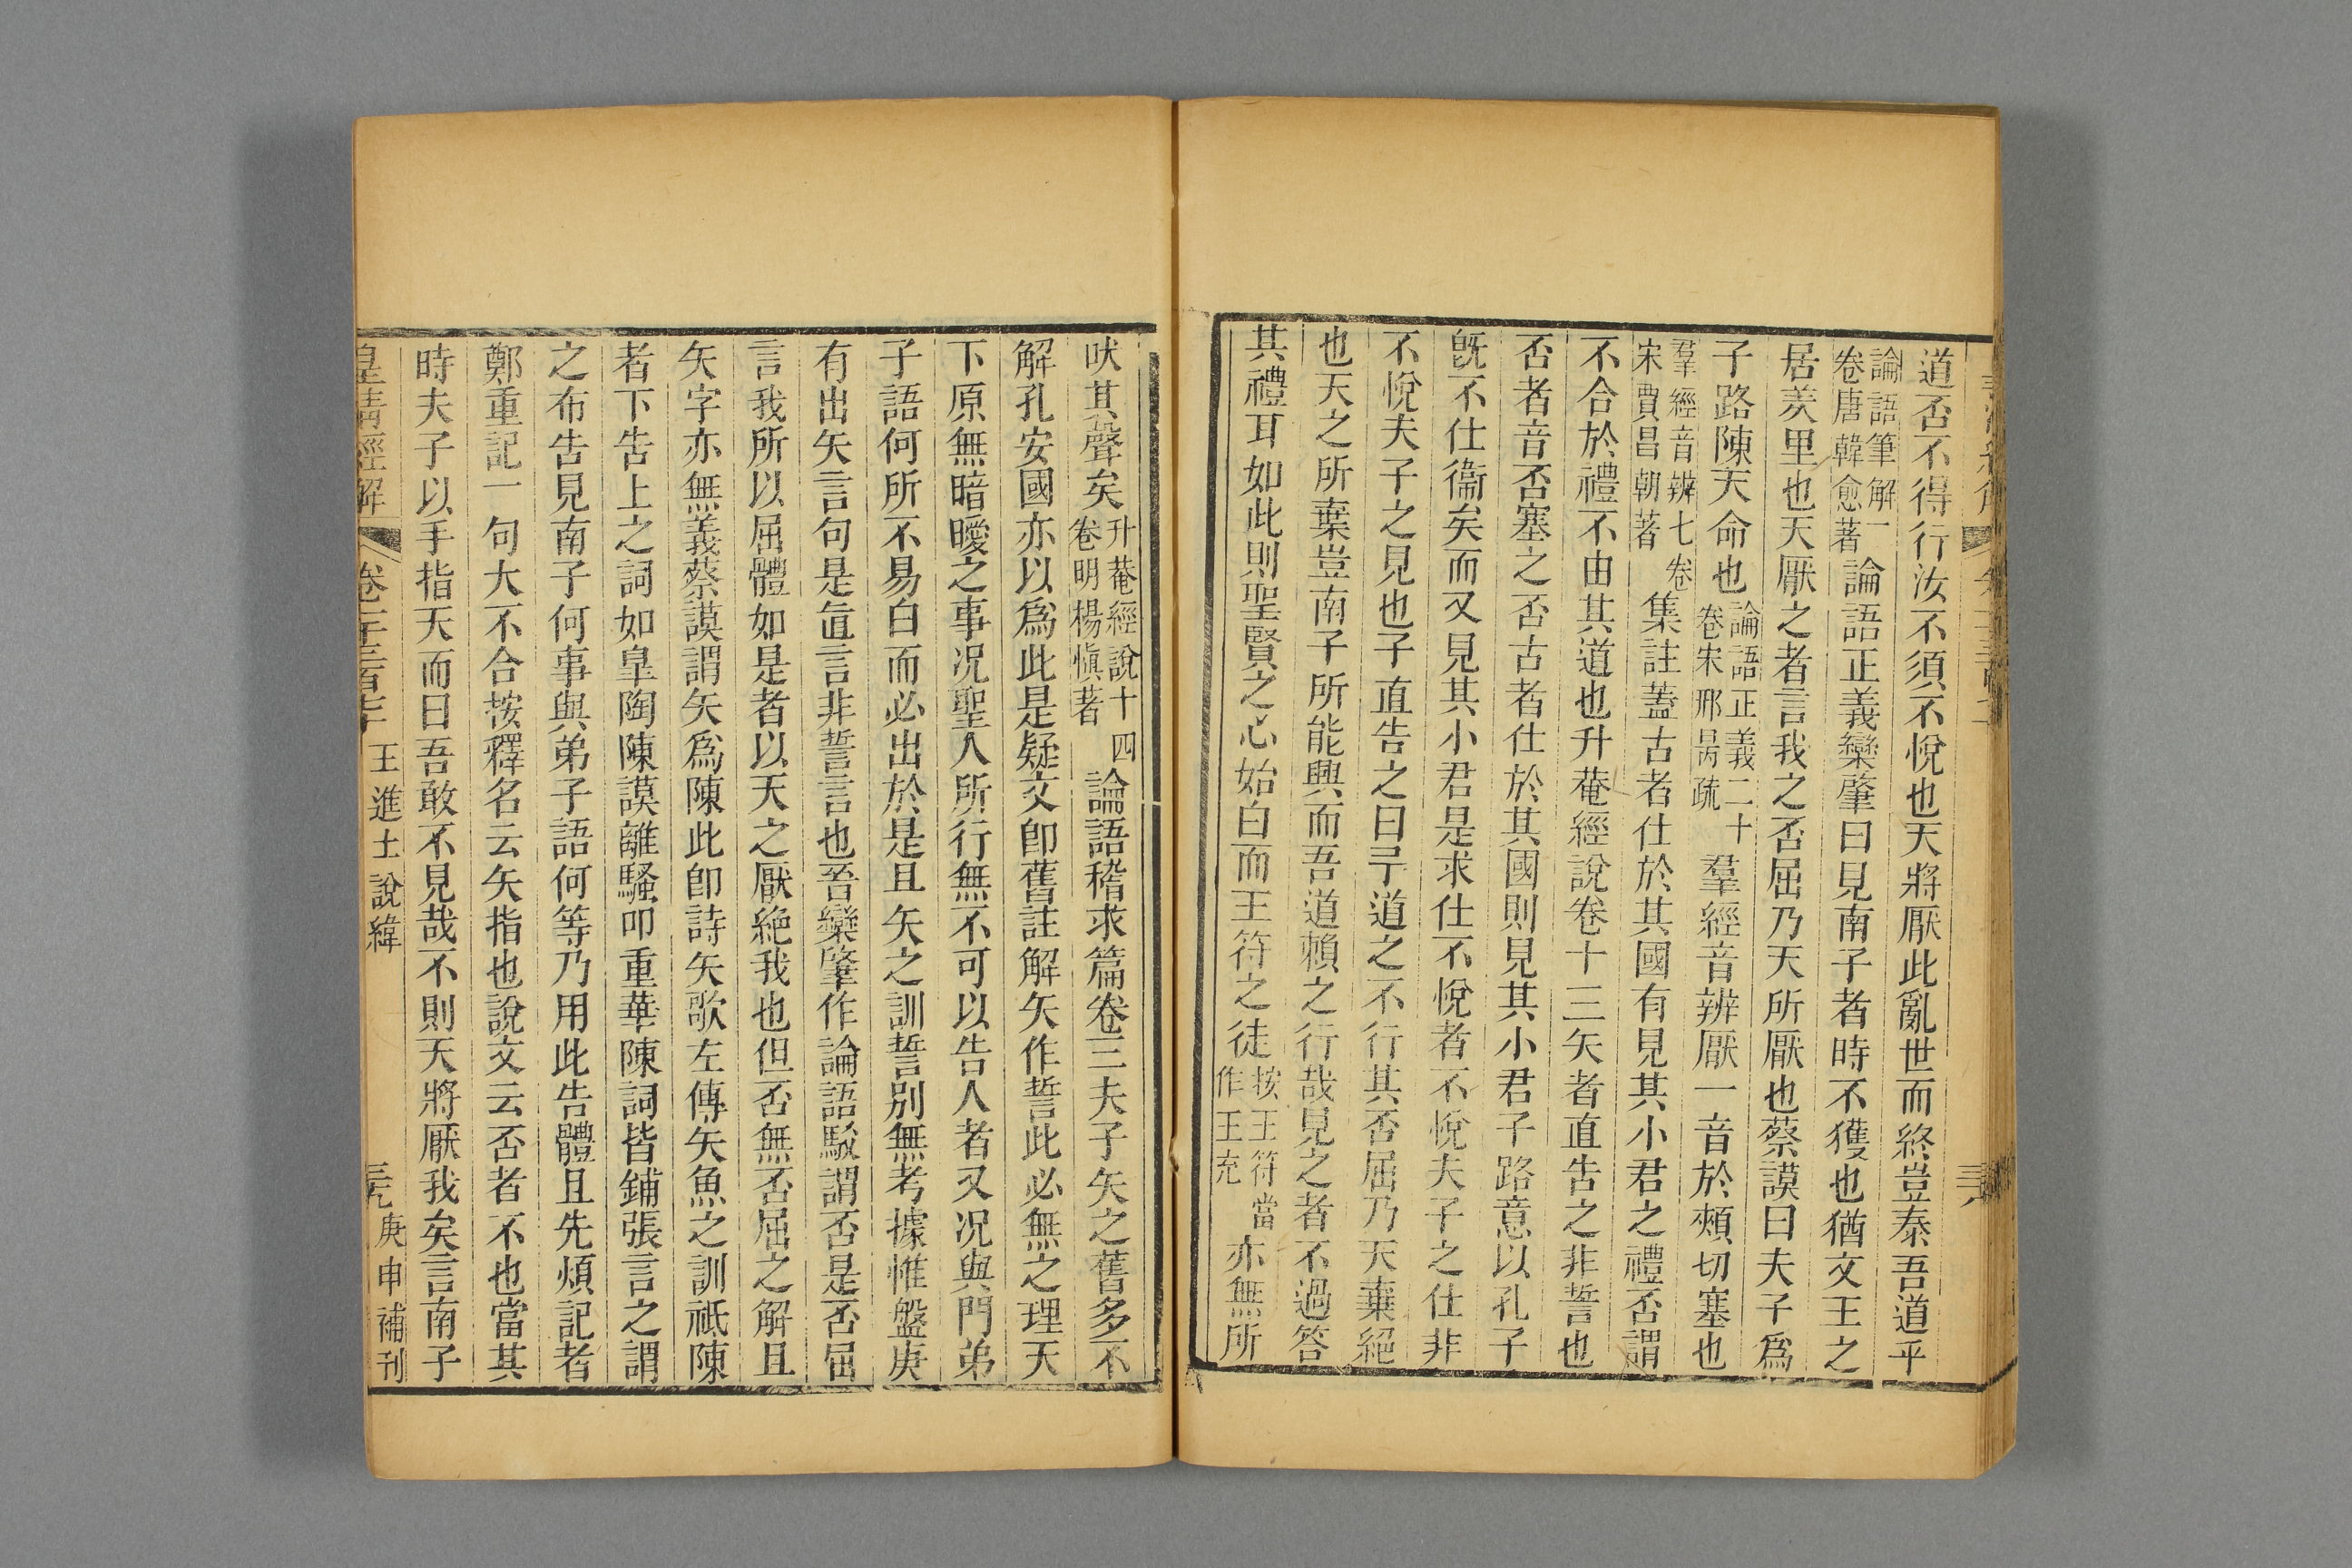 道否不得行汝不須不悅也天將厭此亂世而終豈泰吾道乎
論語筆解一卷唐韓愈著論語正義欒肇曰見南子者時不獲也猶文王之
居羑里也天厭之者言我之否屈乃天所厭也蔡謨曰夫子爲
子路陳天命也論語正義二十卷宋邢昺疏羣經音辨厭一音於頰切塞也
羣經音辨七卷宋賈昌朝著集註蓋古者仕於其國有見其小君之禮否謂
不合於禮不由其道也升菴經說卷十三矢者直告之非誓也
否者音否塞之否古者仕於其國則見其小君子路意以孔子
旣不仕衞矣而又見其小君是求仕不悅者不悅夫子之仕非
不悅夫子之見也子直告之曰予道之不行其否屈乃天棄絕
也天之所棄豈南子所能興而吾道賴之行哉見之者不過答
其禮耳如此則聖賢之心始白而王符之徒按王符當作王充亦無所
吠其聲矣升菴經說十四卷明楊愼著論語稽求篇卷三夫子矢之舊多不
解孔安國亦以爲此是疑文卽舊註解矢作誓此必無之理天
下原無暗曖之事况聖人所行無不可以告人者又况與門弟
子語何所不易白而必出於是且矢之訓誓別無考據惟盤庚
有出矢言句是直言非誓言也吾欒肇作論語駁謂否是否屈
言我所以屈體如是者以天之厭絶我也但否無否屈之解且
矢字亦無義蔡謨謂矢爲陳此卽詩矢歌左傳矢魚之訓祇陳
者下告上之詞如皐陶陳謨離騷叩重華陳詞皆鋪張言之謂
之布告見南子何事與弟子語何等乃用此告體且先煩記者
鄭重記一句大不合按釋名云矢指也說文云否者不也當其
時夫子以手指天而曰吾敢不見哉不則天將厭我矣言南子
皇淸經解 王進士說緯 庚申補刊